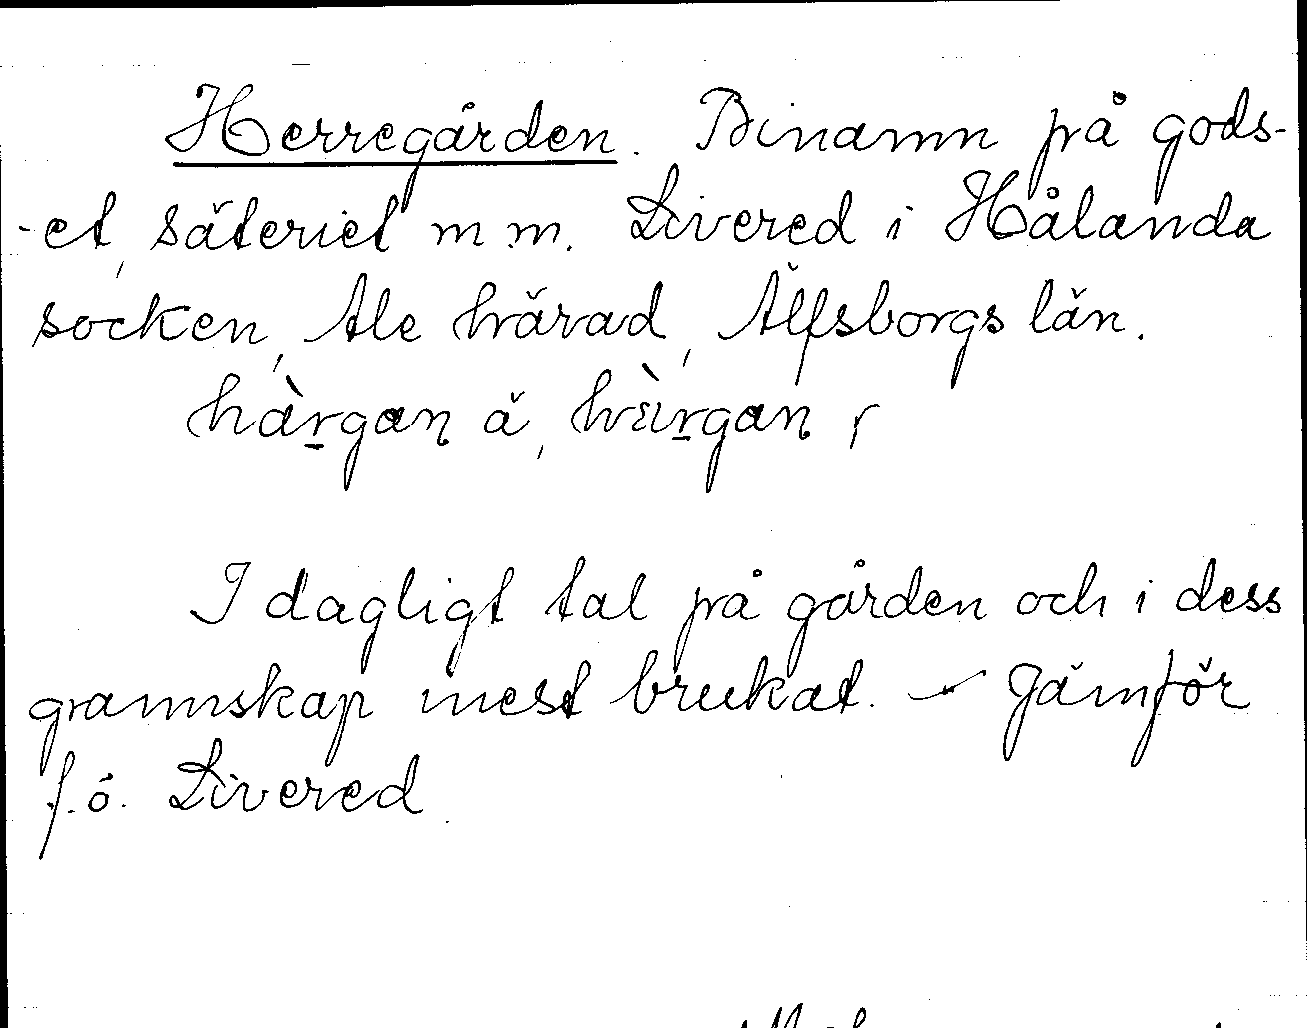 Herregården. Binamn på gods-
-et, säteriet m.m. Livered i Hålanda
socken, Ale härad, Älfsborgs län.
I dagligt tal på gården och i dess
grannskap mest brukat. – Jämför
f.ö. Livered.